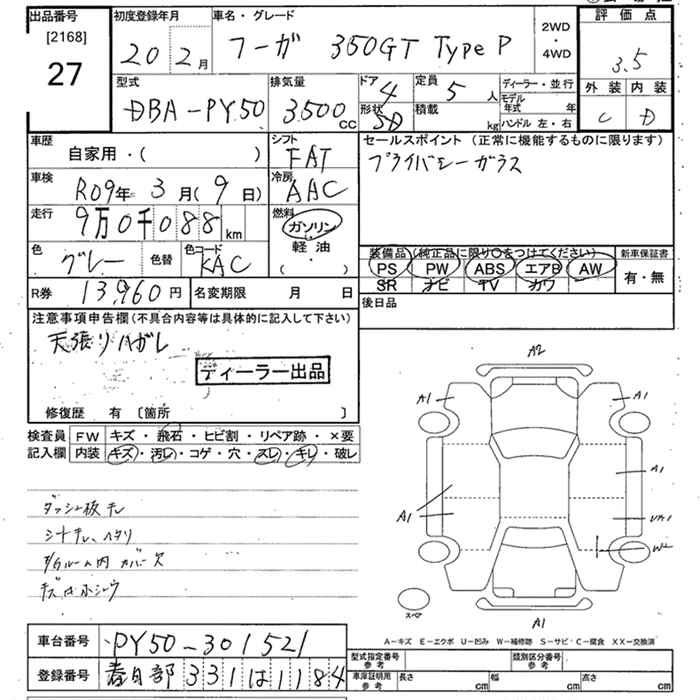 出品番号 初度登録年月 車名・グレード 評価点
[2168]
27
20年2月 フーガ 350GT TypeP 2WD・4WD 3.5
外装 内装
C D
型式 排気量 ドア 定員 ディーラー・並行
DBA-PY50 3,500cc 4 5人 モデル年式 年
形状 積載 ハンドル 左・右
SD kg
車歴 自家用・( ) シフト FAT
セールスポイント(正常に機能するものに限ります)
プライバシーガラス
車検 R09年3月(9日) 冷房 AAC
走行 9万0千088km 燃料 ガソリン・軽油・( )
色 グレー 色替 色コード KAC
装備品(純正品に限り○をつけてください) 新車保証書
PS PW ABS エアB AW 有・無
SR ナビ TV カワ
R券 13,960円 名変期限 月 日
後日品
注意事項申告欄(不具合内容等は具体的に記入して下さい)
天張りハガレ
ディーラー出品
修復歴 有 [箇所 ]
検査員 FW キズ・飛石・ヒビ割・リペア跡・×要
記入欄 内装 キズ・汚レ・コゲ・穴・スレ・キレ・破レ
ダッシュ板キレ
シートキレ、ヘタリ
E/Gルーム内 カバー欠
A2
A1 A1
A1
A1
W2
スペア
A1
A-キズ E-エクボ U-凹み W-補修跡 S-サビ・C-腐食 XX-交換済
車台番号 PY50-301521
型式指定番号 参考 類別区分番号 参考
登録番号 春日部 331 は 1184
車庫証明用 参考 長さ cm 幅 cm 高さ cm